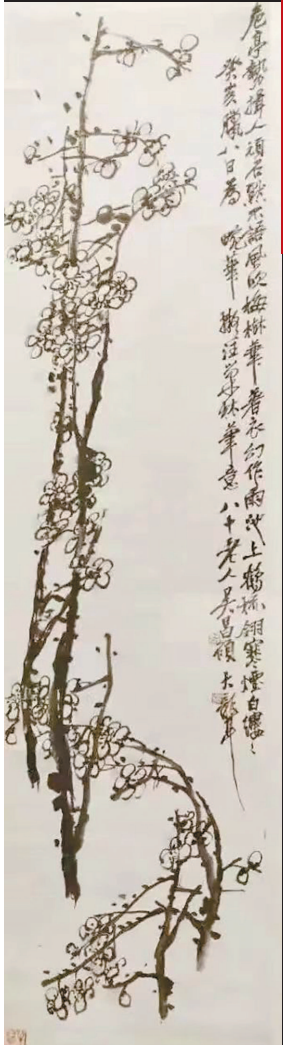 危亭勢揖人頑石默不語風吹梅樹華著衣幻作雨池上鶴梳翎寒煙白縷〻
癸亥臘八日為畹華擬汪巢林筆意八十老人吳昌碩大聾